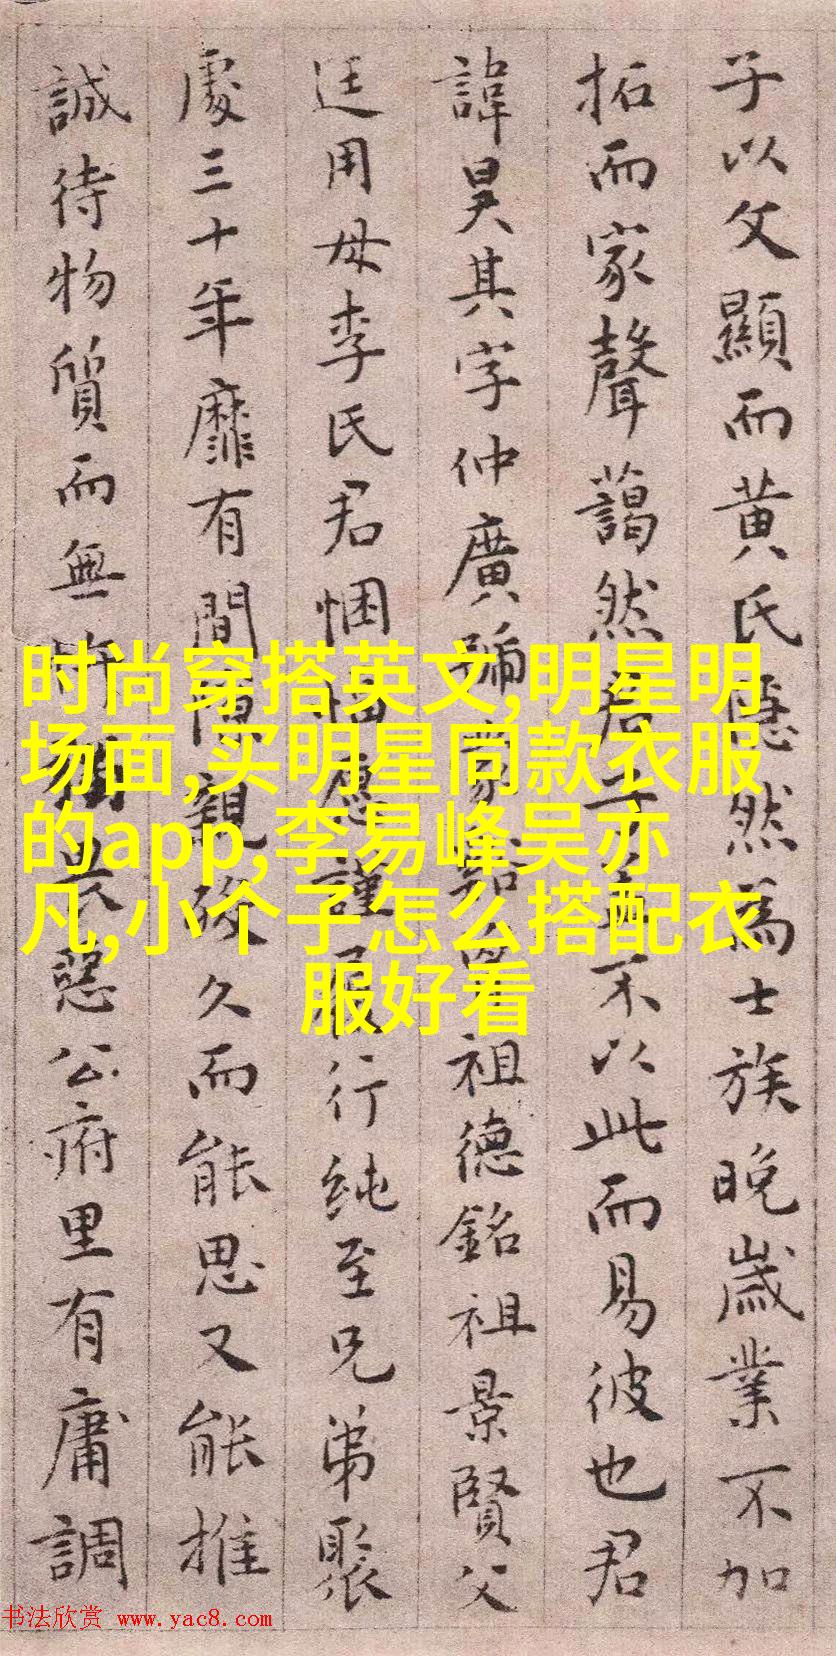 子以父顯而黄氏然爲士族晚歲業不加
拓而家聲藹然君子不以此而易彼也君
諱昊其字仲廣號祖德銘祖景賢父
廷用母李氏君悃愊愿謹行純至兄弟聚
處三十年靡有間親久而能思又能推
誠待物質而無公府里有庸調
时尚穿搭英文,明星明
场面,买明星同款衣服
的app,李易峰吴亦
凡,小个子怎么搭配衣
服好看
书法欣赏 www.yac8.com